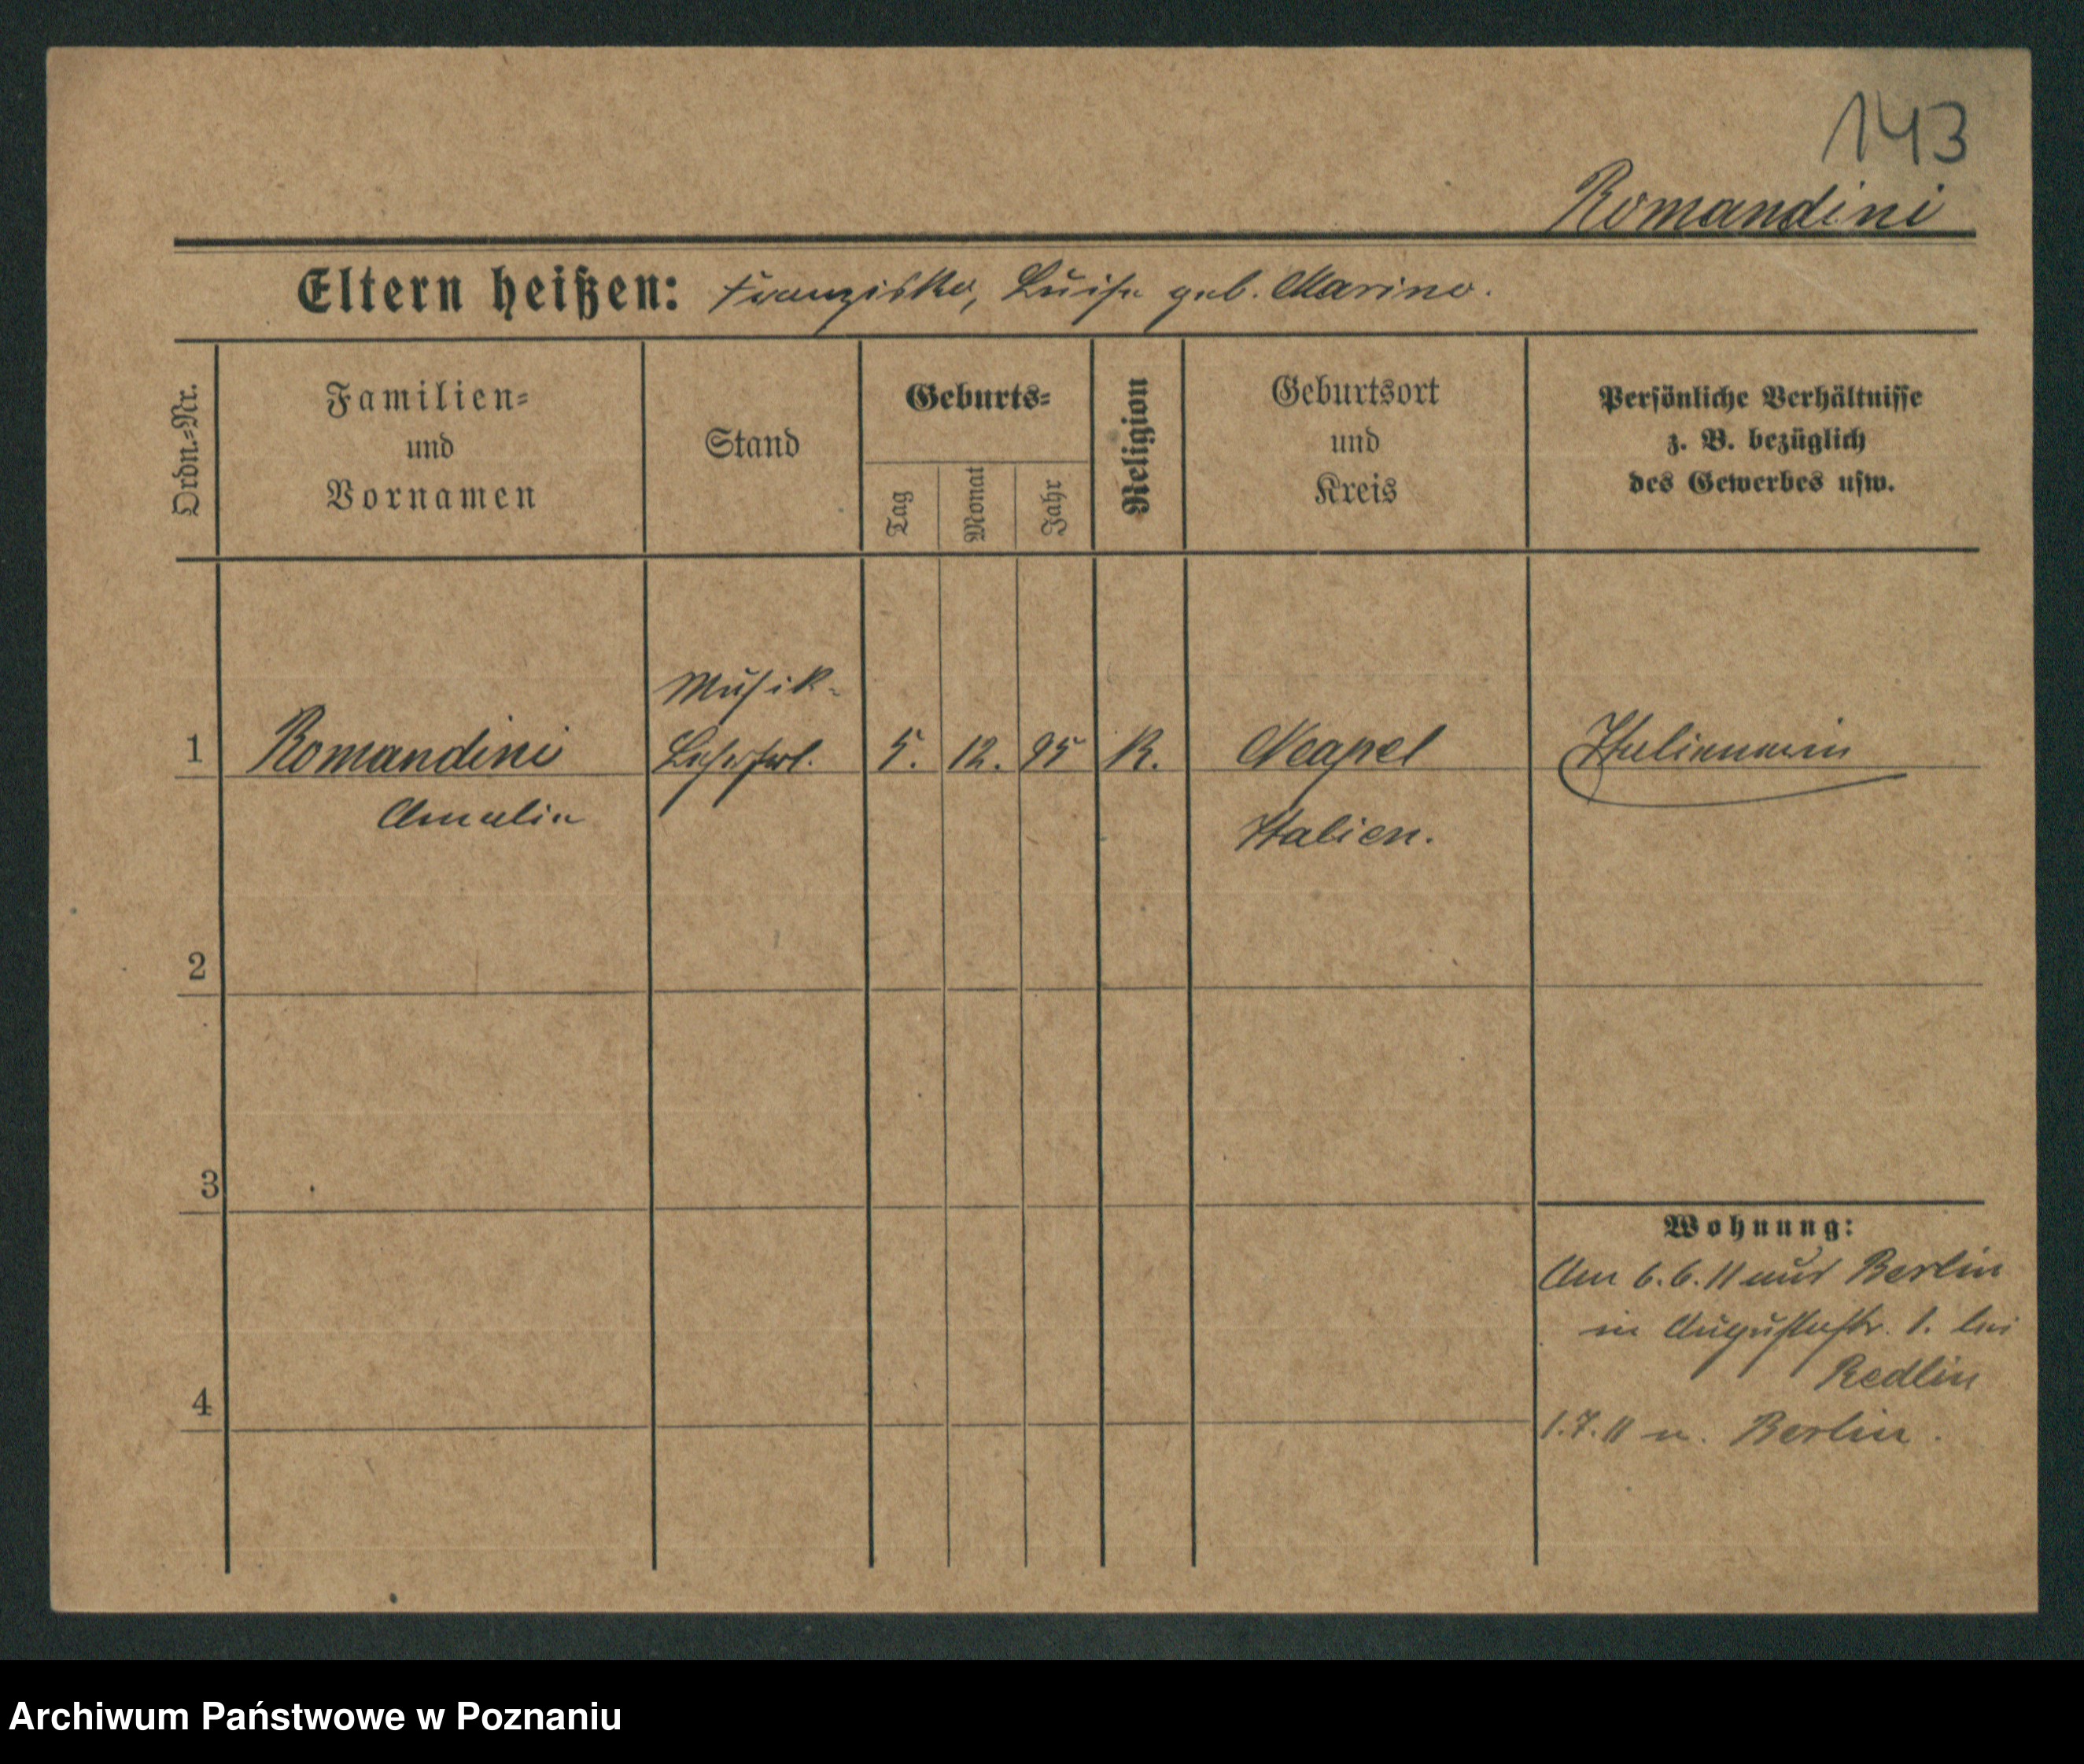 143
Romandini
Eltern heißen: Franzisko, Luise geb. Marino.
Ordn.=Nr.
Familien=
und
Vornamen
Stand
Geburts=
Tag
Monat
Jahr
Religion
Geburtsort
und
Kreis
Persönliche Verhältnisse
z. B. bezüglich
des Gewerbes usw.
Musik-
1 Romandini 5. 12. 95 R. Neapel Italienerin
Amalie
Italien.
2
3
Wohnung:
Am 6.6.11 aus Berlin
in Augustastr. 1. bei
Redlin
4
1.7.11 n. Berlin.
Archiwum Państwowe w Poznaniu